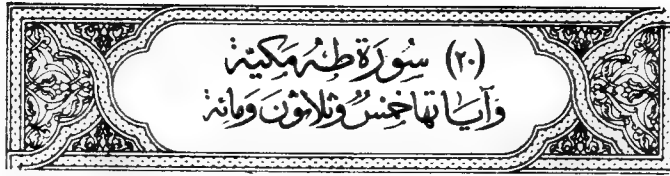 (٢٠) سُورَة طٰهٰ مَكيّة
وَآيَاتهَا خَمْسٌ وَثلاثونَ وَمائة